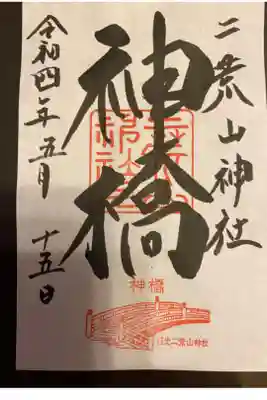 二荒山神社
神橋
令和四年五月十五日
神橋
日光二荒山神社